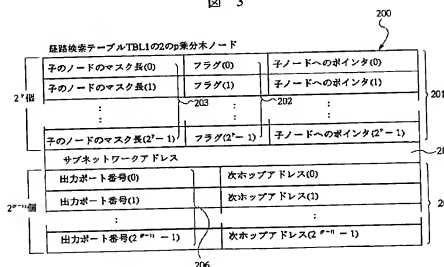 図 3
200
経路検索テーブルTBL1の2のp乗分木ノード
子のノードのマスク長(0) フラグ(0) 子ノードへのポインタ(0)
子のノードのマスク長(1) フラグ(1) 子ノードへのポインタ(1)
2ᵖ個 : 203 : 202 : 201
子のノードのマスク長(2ᵖ−1) フラグ(2ᵖ−1) 子ノードへのポインタ(2ᵖ−1)
サブネットワークアドレス
出力ポート番号(0) 次ホップアドレス(0)
出力ポート番号(1) 次ホップアドレス(1)
: :
出力ポート番号 次ホップアドレス
206